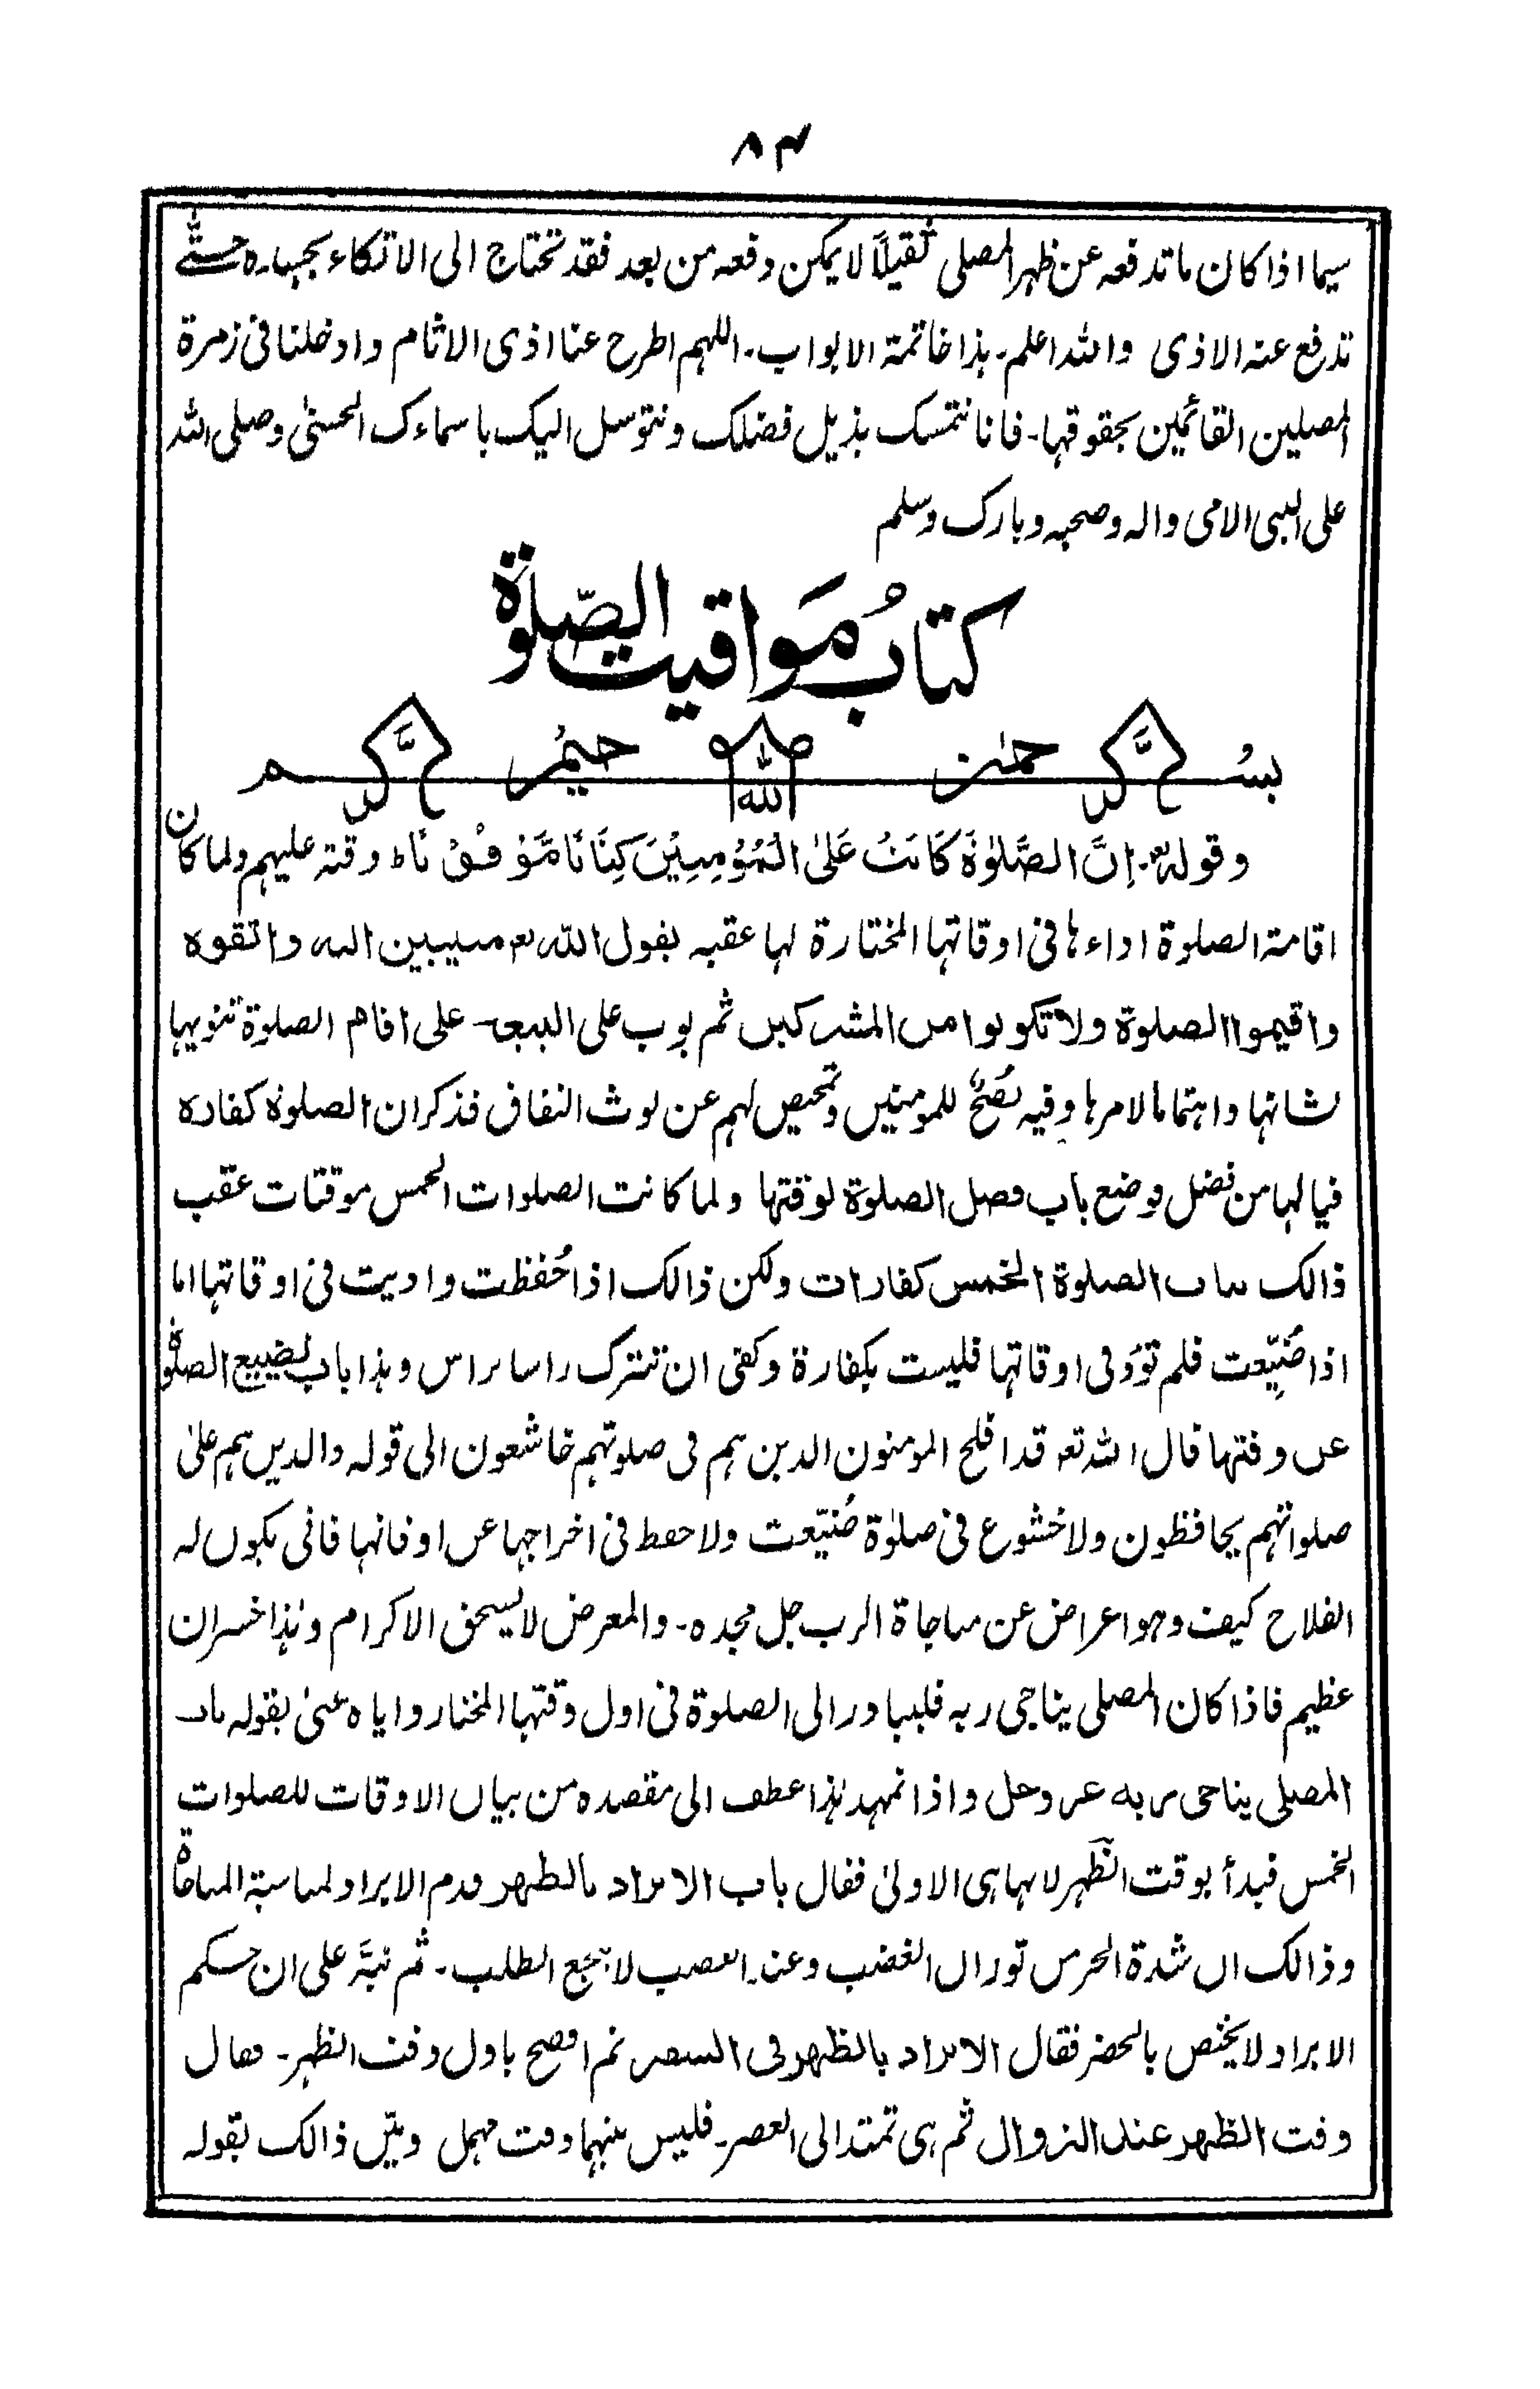 ٨٤
سيما اذا كان ما تدفعه عن ظهر المصلى ثقيلاً لا يمكن دفعه من بعد فقد تحتاج الى الاتكاء بجهاره حتّٰى
تدفع عنه الاذى والله اعلم۔ هذا خاتمة الابواب۔ اللهم اطرح عنا اذى الاثام وادخلنا فى زمرة
المصلين القائمين بحقوقها۔ فانا نتمسك بذيل فضلك ونتوسل اليك باسماءك الحسنىٰ وصلى الله
على النبى الامى واله وصحبه وبارك وسلم
كتابُ مَواقيت الصّلوة
بسم الله الرَّحمٰن الرَّحيم
وقوله تع۔ اِنَّ الصَّلٰوةَ كَانَتْ عَلَى الْمُؤْمِنِيْنَ كِتَابًا مَّوْقُوْتًا ط وقته عليهم ولما كان
اقامة الصلوة اداءها فى اوقاتها المختارة لها عقبه بقول الله تع منيبين اليه واتقوه
واقيموا الصلوة ولا تكونوا من المشركين ثم بوب على البيعة على اقام الصلوة تنويها
لشانها واهتماما لامرها وفيه نُصْحٌ للمومنين وتمحيص لهم عن لوث النفاق فذكر ان الصلوة كفارة
فيالها من فضل فوضع باب فضل الصلوة لوقتها ولما كانت الصلوات الخمس موقتات عقب
ذالك باب الصلوة الخمس كفارات ولكن ذالك اذا حُفظت واديت فى اوقاتها اما
اذا ضُيِّعت فلم تؤد فى اوقاتها فليست بكفارة وكفى ان تترك راسا براس وهذا باب تضييع الصلوة
عن وقتها قال الله تع قد افلح المومنون الذين هم فى صلوتهم خاشعون الى قوله والذين هم علىٰ
صلواتهم يحافظون ولا خشوع فى صلوٰة ضُيّعت ولا حفظ فى اخراجها عن اوقاتها فانى يكون له
الفلاح كيف وهو اعراض عن مناجاة الرب جل مجده۔ والمعرض لا يستحق الاكرام وهٰذا خسران
عظيم فاذا كان المصلى يناجى ربه فليبادر الى الصلوة فى اول وقتها المختار واياه عنىٰ بقوله باب
المصلى يناجى ربه عز وجل واذا تمهد هٰذا عطف الى مقصده من بيان الاوقات للصلوات
الخمس فبدأ بوقت الظهر لانها هى الاولىٰ فقال باب الابراد بالظهر وقدم الابراد لمناسبة المناجاة
وذالك ان شدة الحر من توران الغضب وعند الغضب لا ينجع الطلب۔ ثم نبَّه على ان حكم
الابراد لا يختص بالحضر فقال الابراد بالظهر فى السفر ثم افصح باول وقت الظهر۔ فقال
وقت الظهر عند الزوال ثم هى تمتد الى العصر۔ فليس بينهما وقت مهمل وبيّن ذالك بقوله